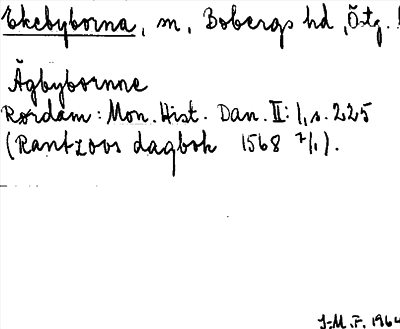 Ekebyborna, m, Bobergs hd, Östg. !
Ägbybornne
Rørdam: Mon. Hist. Dan. II: 1, s. 225
(Rantzovs dagbok 1568 7/1).
J-M. F. 1964